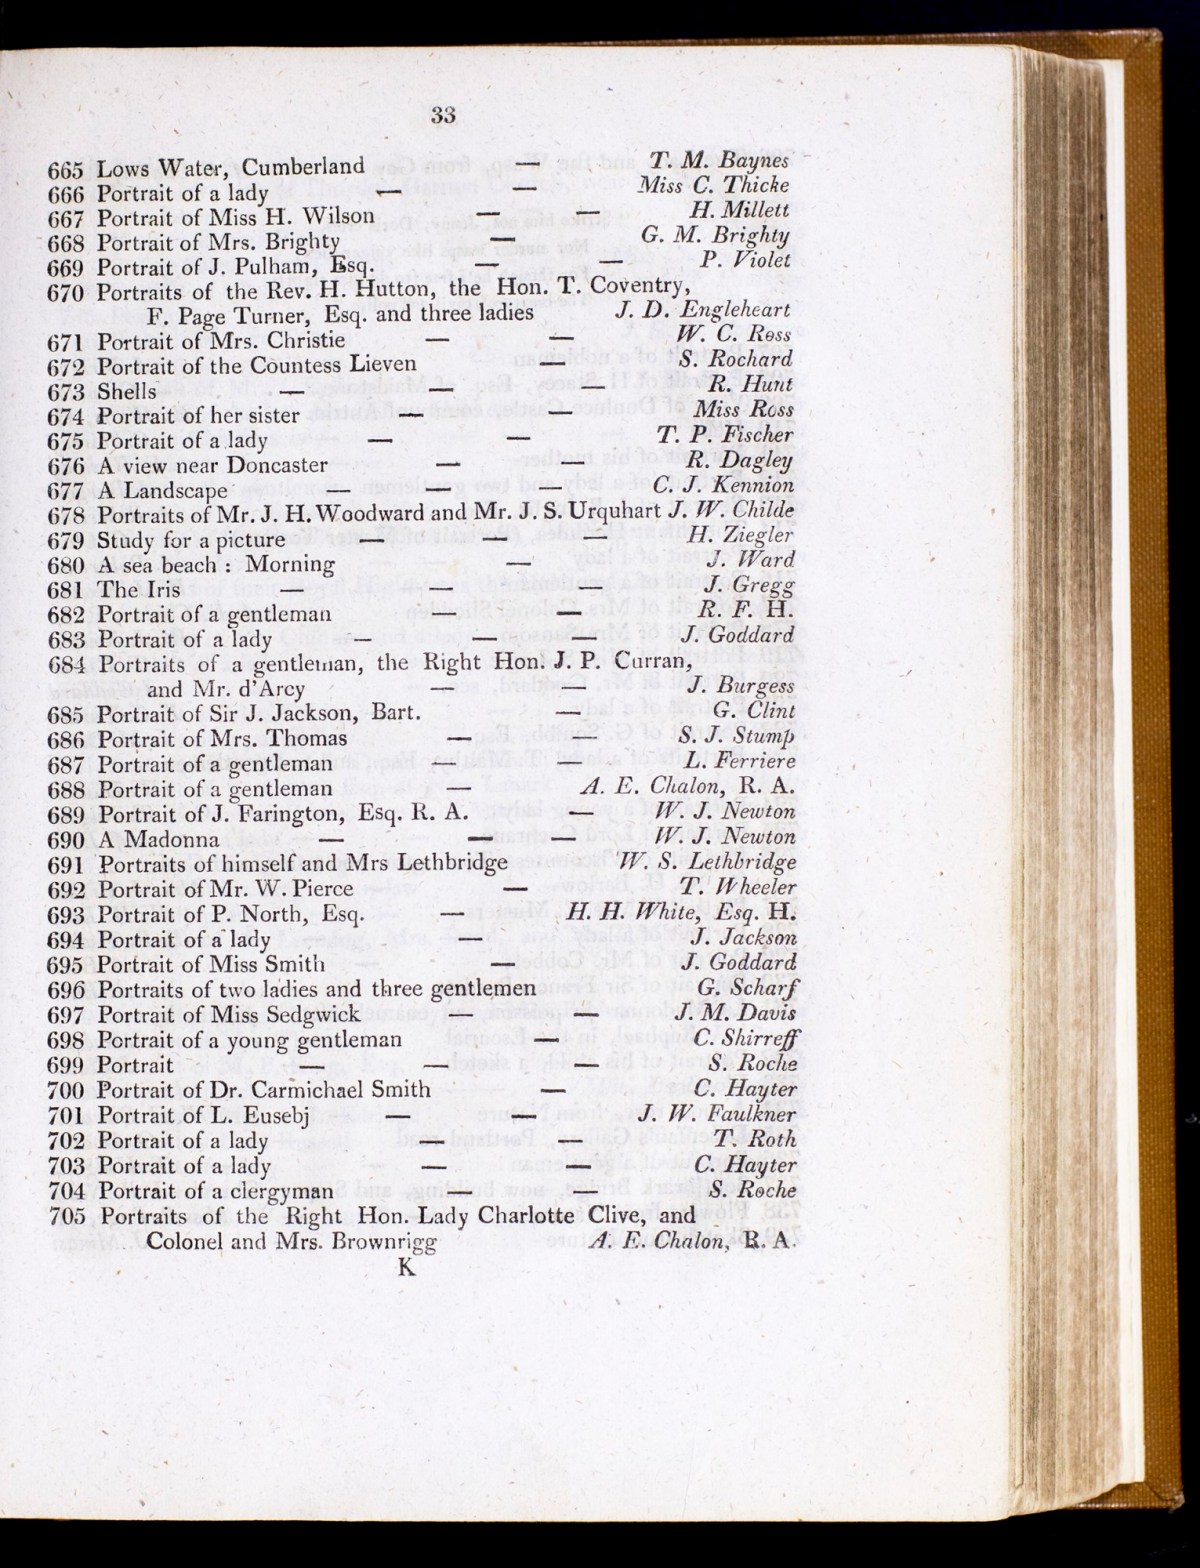 33
665 Lows Water, Cumberland — T. M. Baynes
666 Portrait of a lady — — Miss C. Thicke
667 Portrait of Miss H. Wilson — — H. Millett
668 Portrait of Mrs. Brighty — G. M. Brighty
669 Portrait of J. Pulham, Esq. — — P. Violet
670 Portraits of the Rev. H. Hutton, the Hon. T. Coventry,
F. Page Turner, Esq. and three ladies J. D. Engleheart
671 Portrait of Mrs. Christie — — W. C. Ross
672 Portrait of the Countess Lieven — S. Rochard
673 Shells — — — R. Hunt
674 Portrait of her sister — — Miss Ross
675 Portrait of a lady — — T. P. Fischer
676 A view near Doncaster — — R. Dagley
677 A Landscape — — — C. J. Kennion
678 Portraits of Mr. J. H. Woodward and Mr. J. S. Urquhart J. W. Childe
679 Study for a picture — — — H. Ziegler
680 A sea beach : Morning — J. Ward
681 The Iris — — — J. Gregg
682 Portrait of a gentleman — — R. F. H.
683 Portrait of a lady — — J. Goddard
684 Portraits of a gentleman, the Right Hon. J. P. Curran,
and Mr. d'Arcy — — J. Burgess
685 Portrait of Sir J. Jackson, Bart. — G. Clint
686 Portrait of Mrs. Thomas — — S. J. Stump
687 Portrait of a gentleman — — L. Ferriere
688 Portrait of a gentleman — A. E. Chalon, R. A.
689 Portrait of J. Farington, Esq. R. A. — W. J. Newton
690 A Madonna — — — W. J. Newton
691 Portraits of himself and Mrs Lethbridge W. S. Lethbridge
692 Portrait of Mr. W. Pierce — T. Wheeler
693 Portrait of P. North, Esq. — H. H. White, Esq. H.
694 Portrait of a lady — J. Jackson
695 Portrait of Miss Smith — J. Goddard
696 Portraits of two ladies and three gentlemen G. Scharf
697 Portrait of Miss Sedgwick — — J. M. Davis
698 Portrait of a young gentleman — C. Shirreff
699 Portrait — — — S. Roche
700 Portrait of Dr. Carmichael Smith — C. Hayter
701 Portrait of L. Eusebj — — J. W. Faulkner
702 Portrait of a lady — — T. Roth
703 Portrait of a lady — — C. Hayter
704 Portrait of a clergyman — — S. Roche
705 Portraits of the Right Hon. Lady Charlotte Clive, and
Colonel and Mrs. Brownrigg A. E. Chalon, R. A.
K